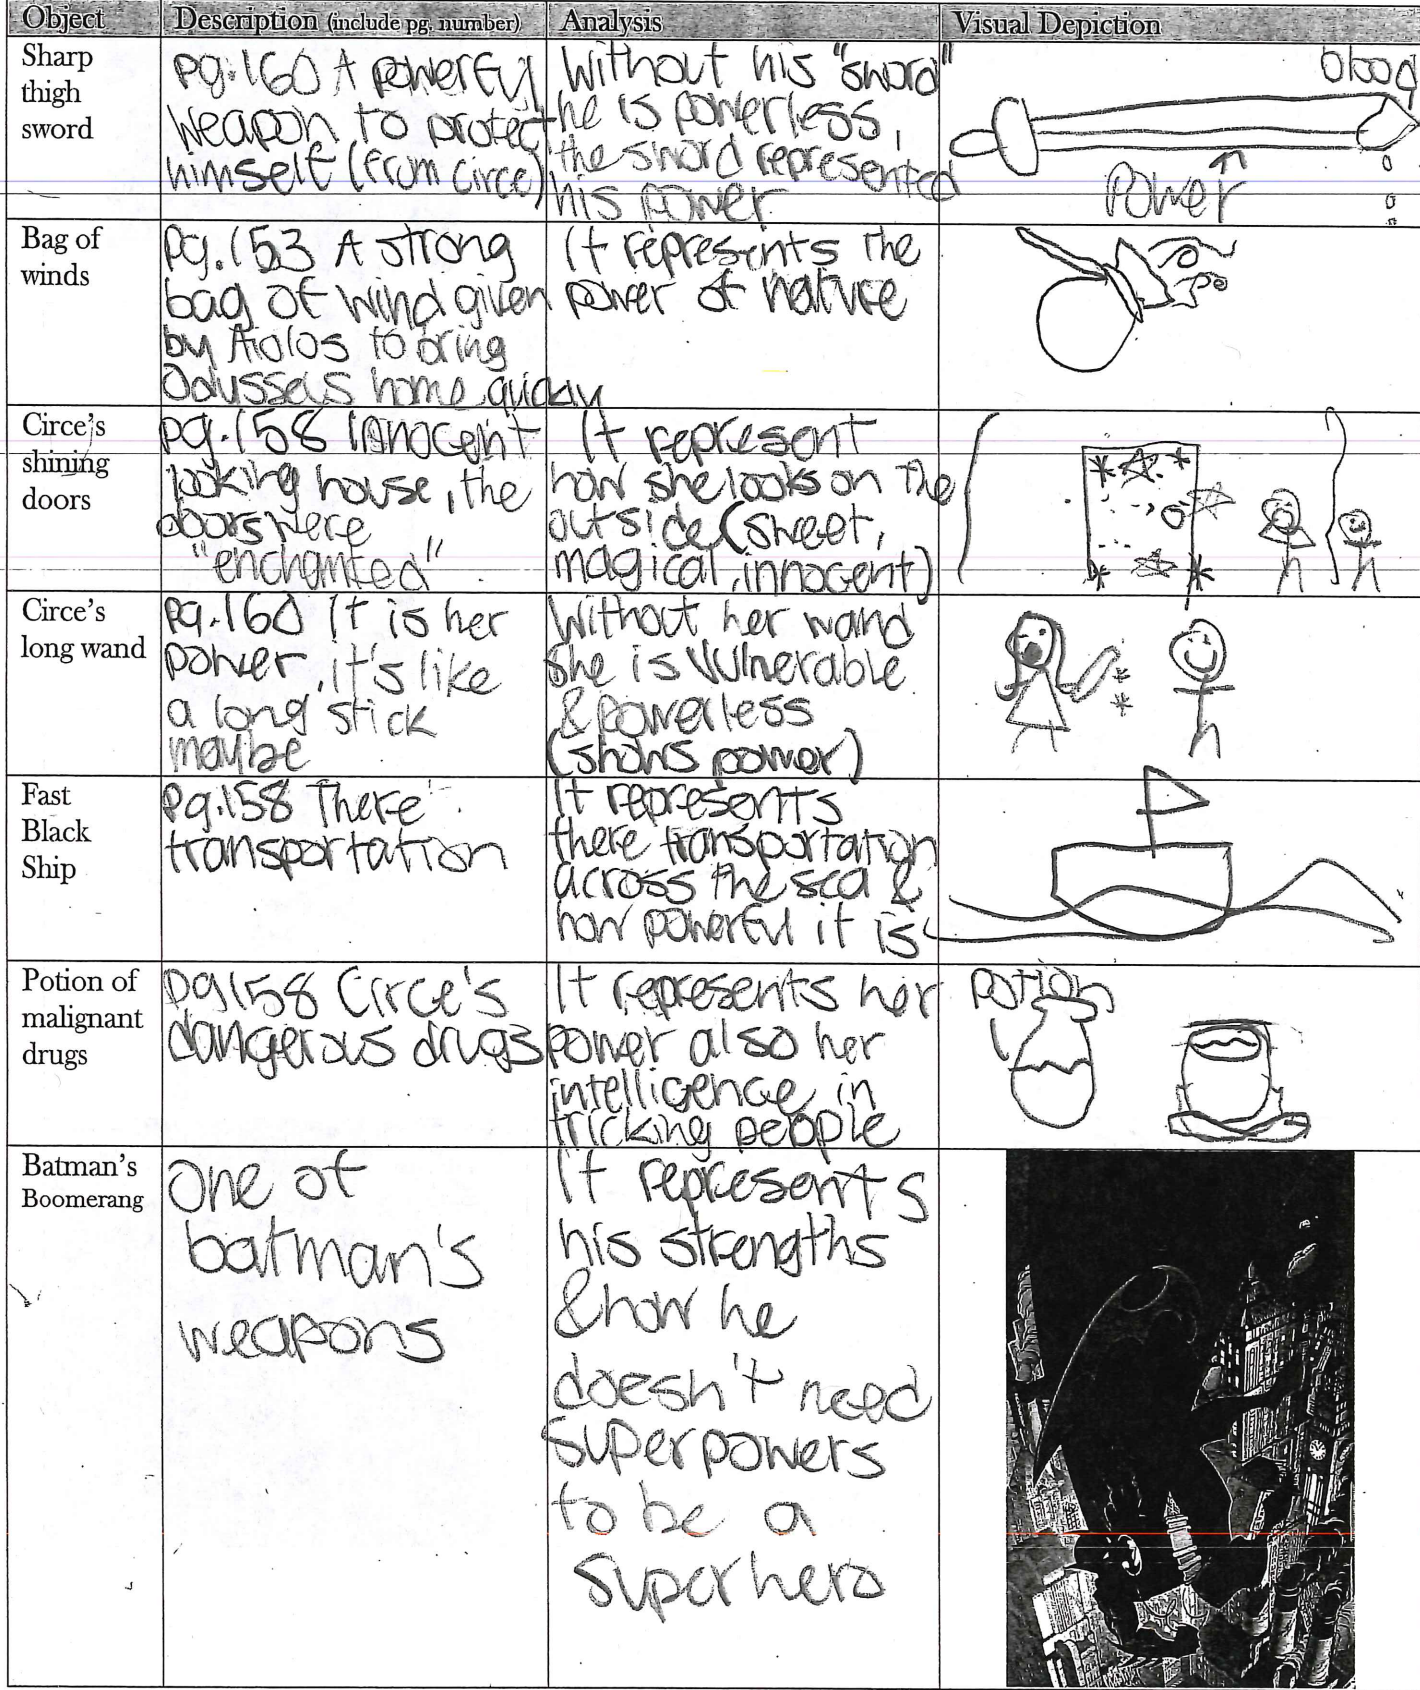 Object Description (include pg. number) Analysis Visual Depiction
Sharp
thigh
sword
pg.160 A powerful
weapon to protect
himself (from Circe)
Without his "sword"
he is powerless,
the sword represented
his power
blood
Power
Bag of
winds
pg.153 A strong
bag of wind given
by Aiolos to bring
Odysseus home quickly
It represents the
power of nature
Circe's
shining
doors
pg.158 Innocent
looking house, the
doors were
"enchanted"
It represent
how she looks on the
outside (sweet,
magical, innocent)
Circe's
long wand
pg.160 It is her
power, it's like
a long stick
maybe
Without her wand
she is vulnerable
& powerless
(shows power)
Fast
Black
Ship
pg.158 There
transportation
It represents
there transportation
across the sea &
how powerful it is
Potion of
malignant
drugs
pg158 Circe's
dangerous drugs
It represents her
power also her
intelligence in
tricking people
potion
Batman's
Boomerang
One of
batman's
weapons
It represents
his strengths
& how he
doesn't need
superpowers
to be a
superhero